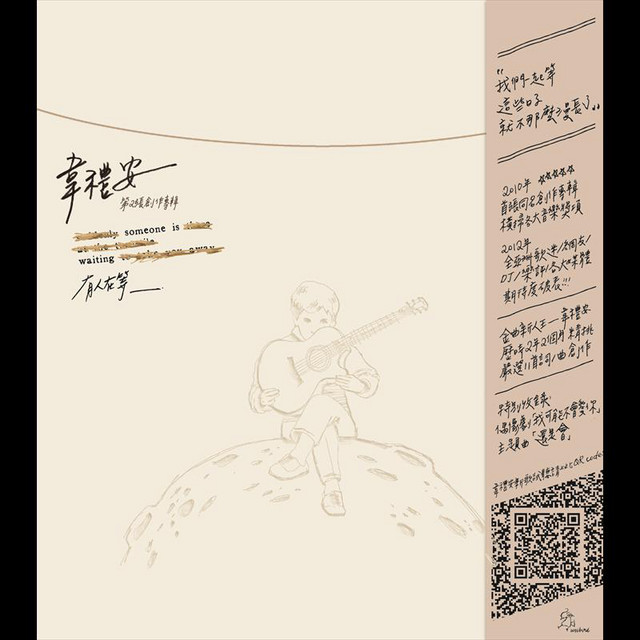 韋禮安
第2張創作專輯
someone is
waiting
有人在等__.
"我們一起等
這些日子
就不那麼漫長了"
2010年
首張同名創作專輯
橫掃各大音樂獎項
2012年
全亞洲歌迷/網友/
DJ/樂評/各大媒體
期待度破表!!!
金曲新人王—韋禮安
歷時2年2個月 精挑
嚴選11首詞/曲創作
特別收錄:
偶像劇「我可能不會愛你」
主題曲「還是會」
QR code